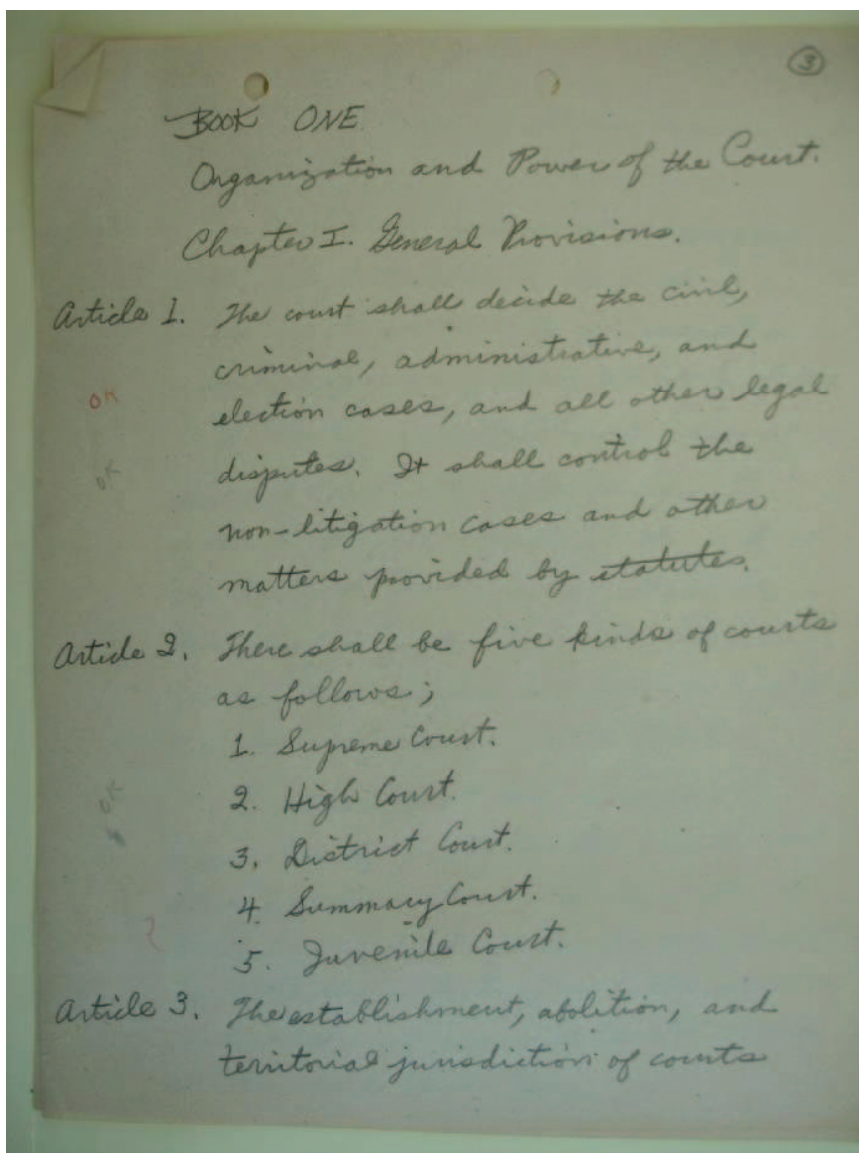 ③
BOOK ONE
Organization and Power of the Court.
Chapter I. General Provisions.
Article 1. The court shall decide the civil,
criminal, administrative, and
OK
election cases, and all other legal
OK
disputes. It shall control the
non-litigation cases and other
matters provided by statutes.
Article 2. There shall be five kinds of courts
as follows;
1. Supreme Court.
OK
2. High Court.
3. District Court.
4. Summary Court.
?
5. Juvenile Court.
Article 3. The establishment, abolition, and
territorial jurisdiction of courts